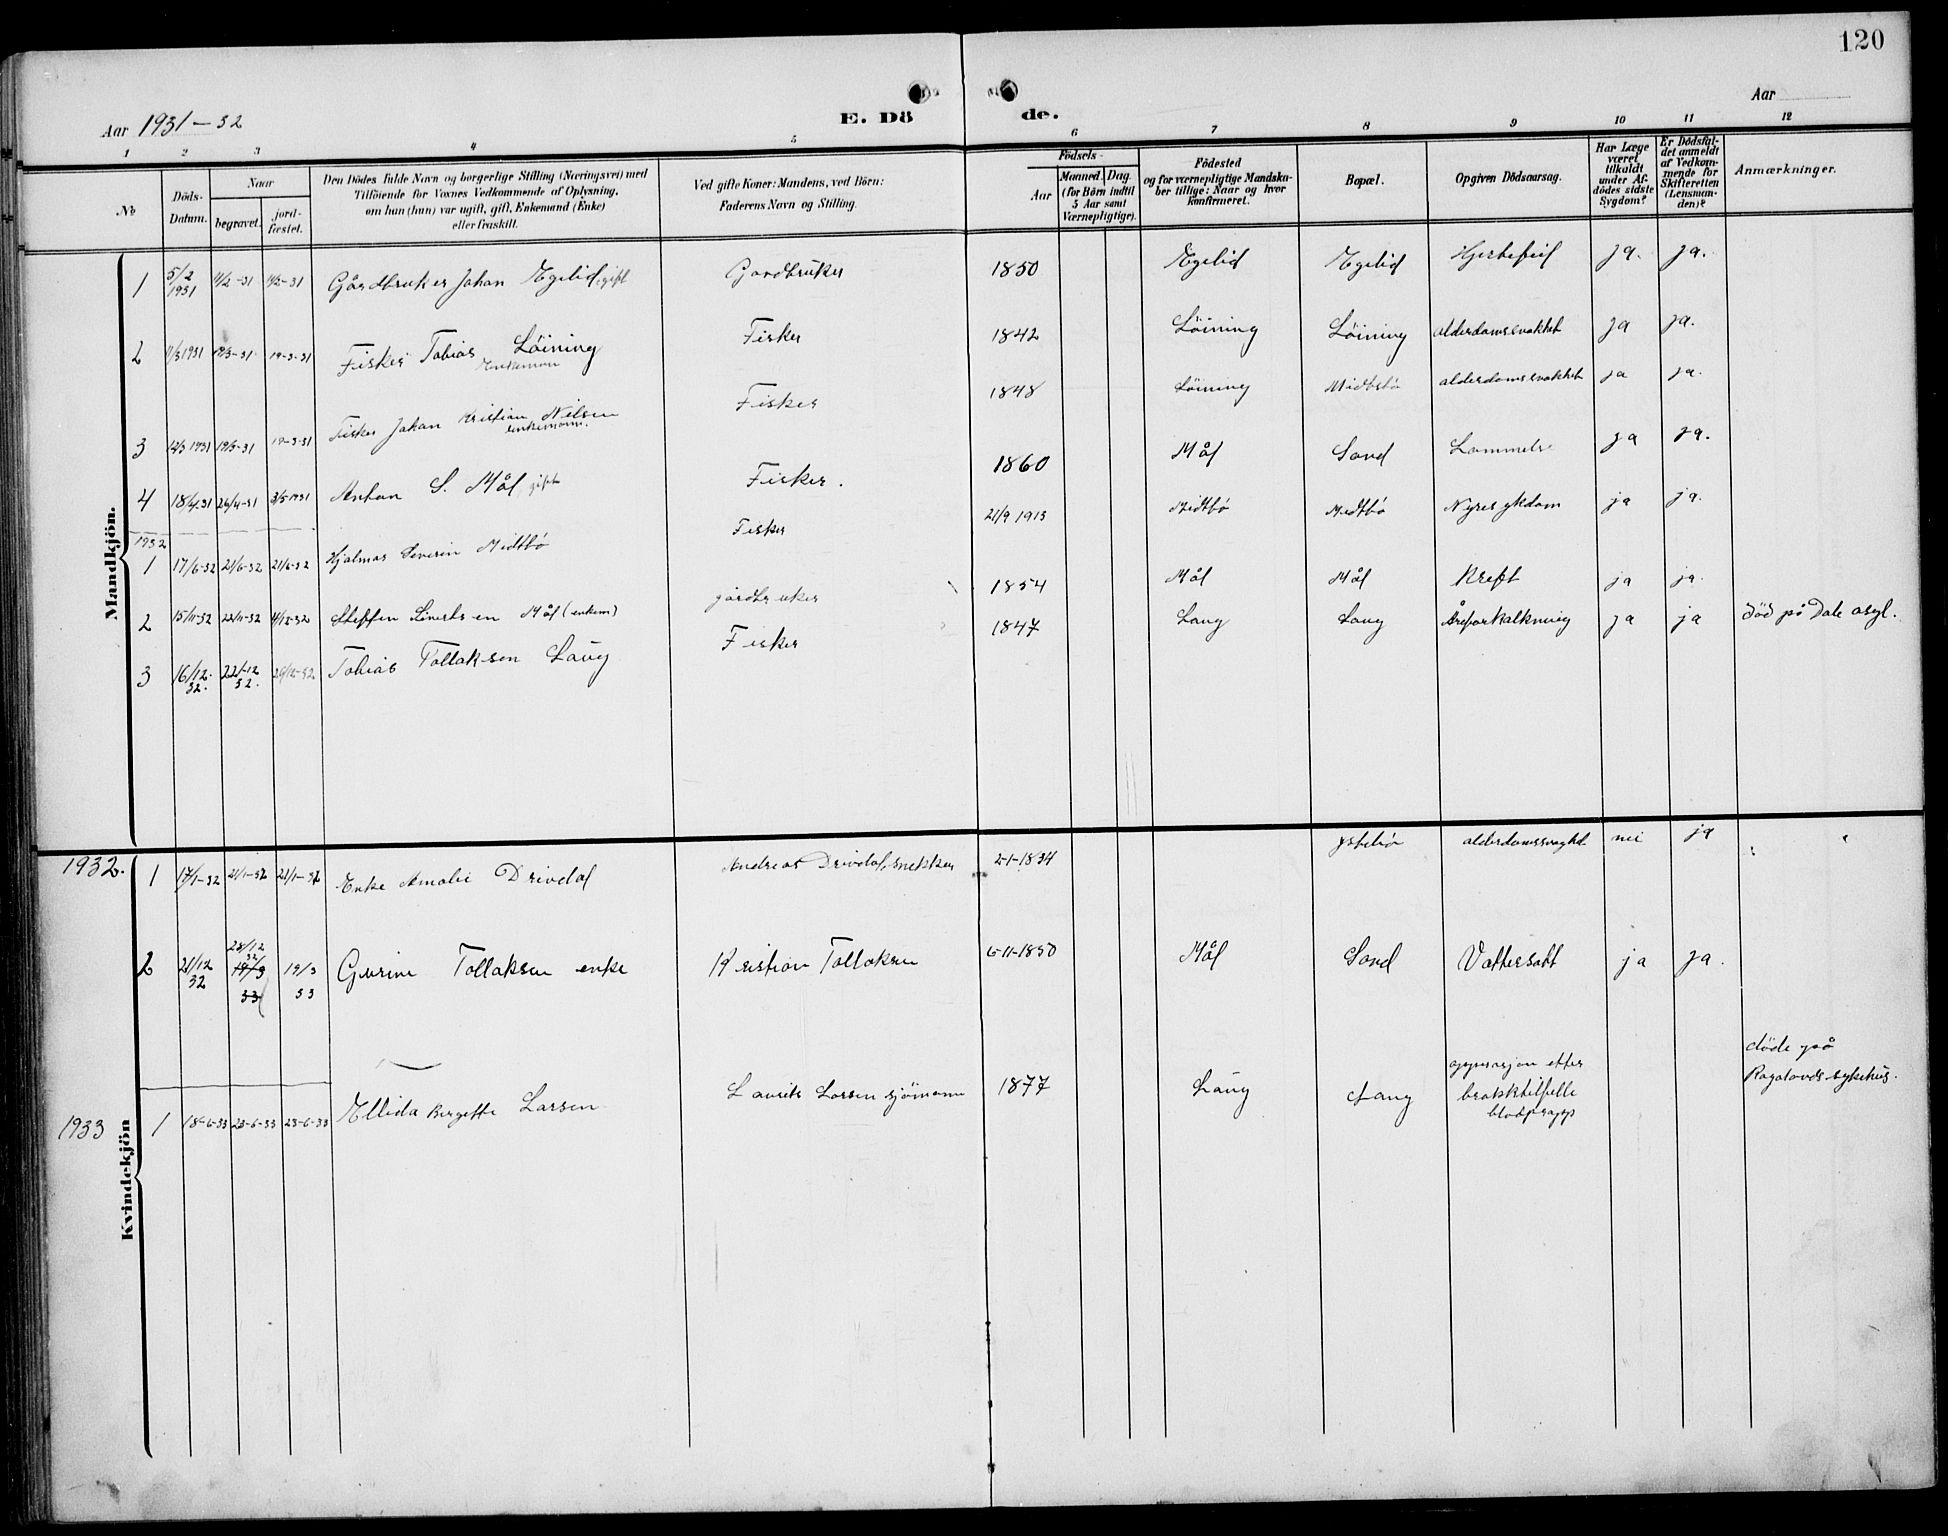 120
Aar 1931-32
E. Dö de.
Aar
1 2 3 4 5 6 7 8 9 10 11 12
No
Döds-Datum.
Naar
begravet. jordfæstet.
Den Dödes fulde Navn og borgerlige Stilling (Næringsvei) med
Tilföiende for Voxnes Vedkommende af Oplysning,
om han (hun) var ugift, gift, Enkemand (Enke)
eller fraskilt.
Ved gifte Koner: Mandens, ved Börn:
Faderens Navn og Stilling.
Födsels-
Aar
Maaned. Dag.
(for Börn indtil
5 Aar samt
Værnepligtige).
Födested
og for værnepligtige Mandska-
ber tillige: Naar og hvor
konfirmeret.
Bopæl.
Opgiven Dödsaarsag.
Har Læge
været
tilkaldt
under Af-
dödes sidste
Sygdom?
Er Dödsfal-
det anmeldt
af Vedkom-
mende for
Skifteretten
(Lensman-
den)?
Anmærkninger.
Mandkjön.
1 5/2 1931 11/2-31 11/2-31 Gårdbruker Johan Egelid, gift Gardbruker 1850 Egelid Egelid Hjertefeil ja. ja.
2 11/3 1931 19/3-31 19-3-31 Fisker Tobias Löining Enkeman Fisker 1842 Löining Löining alderdomssvakhet ja ja.
3 12/3 1931 19/3-31 19-3-31 Fisker Johan Kristian Nilsen enkemann. Fisker 1848 Löining Midtbö alderdomssvakhet ja ja.
4 18/4.31 26/4-31 3/5 1931 Anton S. Mål, gift Fisker. 1860 Mål Sand ja ja.
1932
1 17/6-32 21/6-32 21/6-32 Hjalmar Severin Midtbö Fisker 21/9 1913 Midtbö Midtbö Nyresykdom ja ja.
2 15/11-32 22/11-32 4/12-32 Steffen Sivertsen Mål (enkem) gårdbruker 1854 Mål Mål Kreft ja ja.
3 16/12. 32. 22/12 32. 26/12-32 Tobias Tollaksen Laug Fisker 1847 Laug Laug Åreforkalkning ja ja död på Dale asyl.
1932. 1 17/1-32 21/1-32 21/1-32 Enke Amalie Drivdal Andreas Drivdal, snekker 2-1-1834 ystebö alderdomssvaghet nei ja
2 21/12 32 28/12 32 19/3 33 19/3 33 Gurine Tollaksen enke Kristian Tollaksen 6-11-1850 Mål Sand Vattersott ja ja.
Kvindekjön
1933 1 18-6-33 23-6-33 23-6-33 Ellida Bergette Larsen Laurits Larsen sjömann 1877 Laug Laug opperasjon etter
brokktilfelle
blodpropp
döde på
Rogalands sykehus.